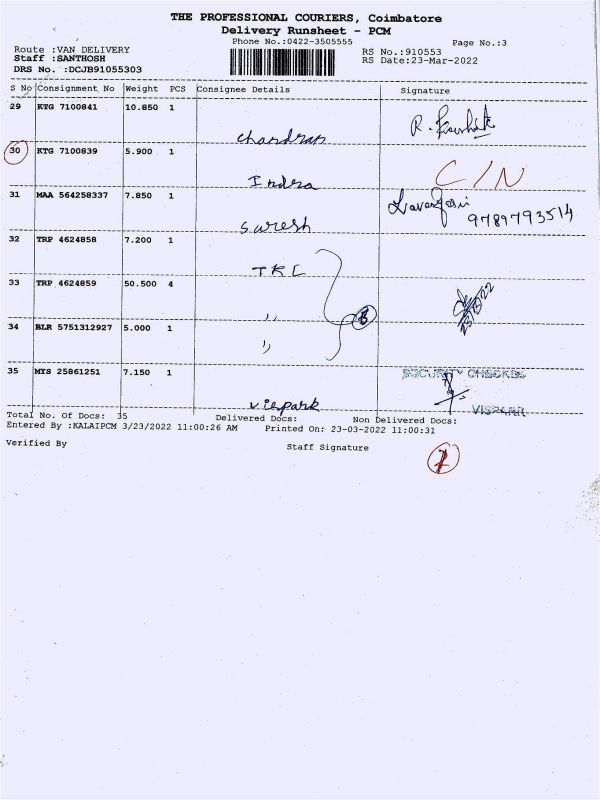 THE PROFESSIONAL COURIERS, Coimbatore
Delivery Runsheet - PCM
Phone No.:0422-3505555
Page No.:3
Route :VAN DELIVERY
RS No.:910553
Staff :SANTHOSH
RS Date:23-Mar-2022
DRS No. :DCJB91055303
S No Consignment No Weight PCS Consignee Details Signature
29 KTG 7100841 10.850 1
Chandran R. Koushik
30 KTG 7100839 5.900 1
Indra C/N
31 MAA 564258337 7.850 1
Suresh 9789793514
32 TRP 4624858 7.200 1
TKL
33 TRP 4624859 50.500 4
,, 6 23/3/22
34 BLR 5751312927 5.000 1
,,
35 MYS 25861251 7.150 1
SECURITY CHECKED
vispark
Total No. Of Docs: 35 Delivered Docs: Non Delivered Docs:
Entered By :KALAIPCM 3/23/2022 11:00:26 AM Printed On: 23-03-2022 11:00:31
Verified By
Staff Signature
1